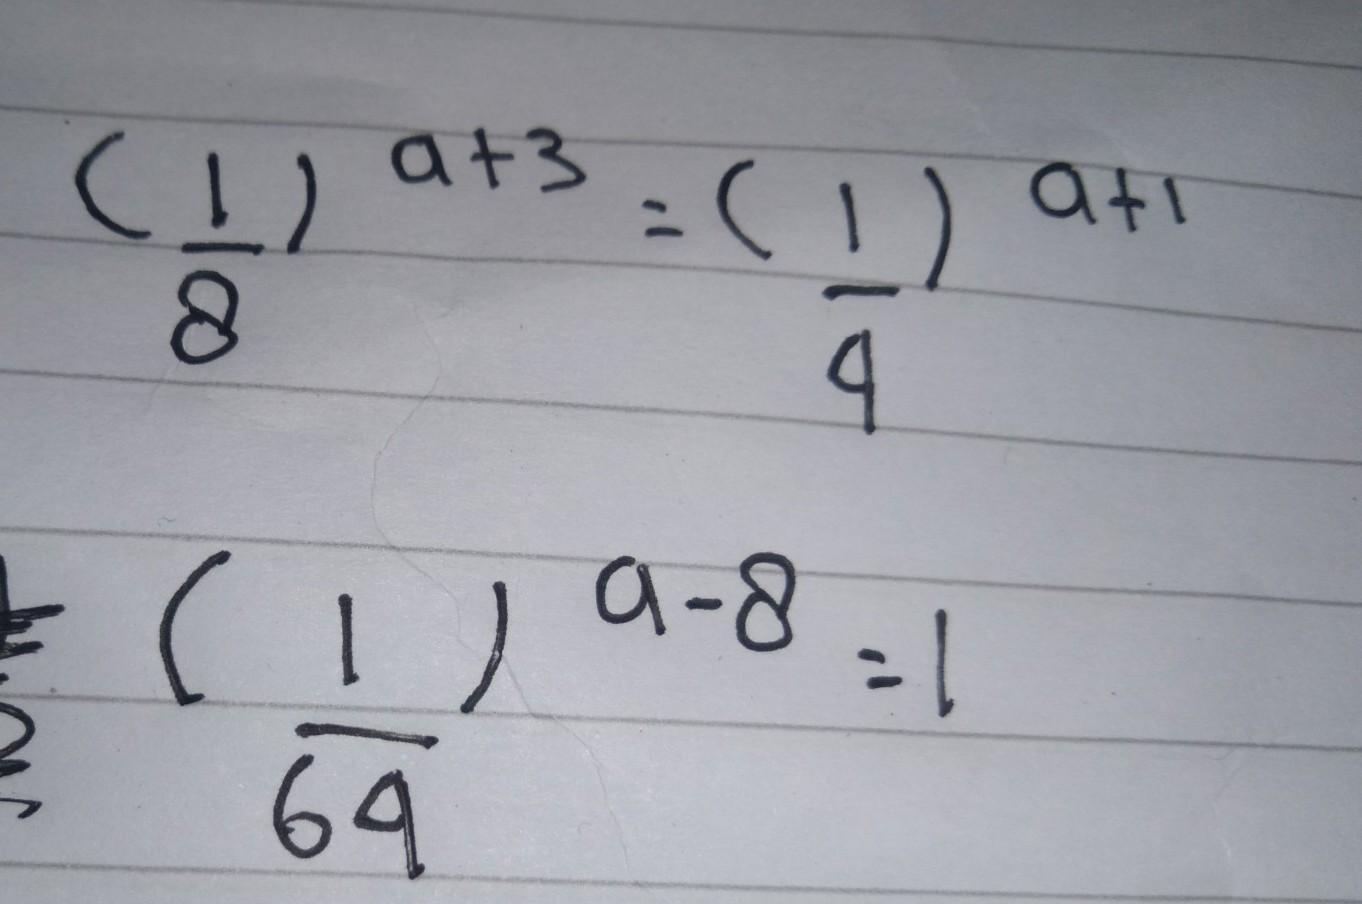 (1/8)^a+3 = (1/4)^a+1
(1/64)^a-8 = 1